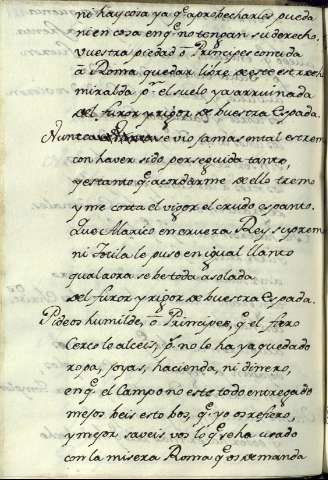 ni hay cosa ya q̃ aprobecharles pueda
ni en cosa enq̃ no tengan su derecho,
vuestra piedad ô Principes conceda
â Roma quedar libre de este estrecho
miralda pr. el suelo ya arruinada
del furor y rigor de buestra Espada.
Nunca se vio jamas en tal estrem
con haver sido perseguida tanto,
y es tanto q̃ acordarme de ello tremo
y me corta el vigor el crudo espanto.
Que Alarico en crueza Rey supremo
ni Totila le puso en igual llanto
qual aora se be toda asolada
del furor y rigor de buestra Espada.
Pideos humilde, ô Principes, q̃ el fiero
Cerco lo alceis, p. no le ha ya quedado
ropa, joyas, hacienda, ni dinero,
enq̃ el Campo no este todo entregado
mejor beis esto bos, q̃ yo os refiero,
y mejor saveis vos lo q̃ se ha usado
con la misera Roma q̃ os demanda